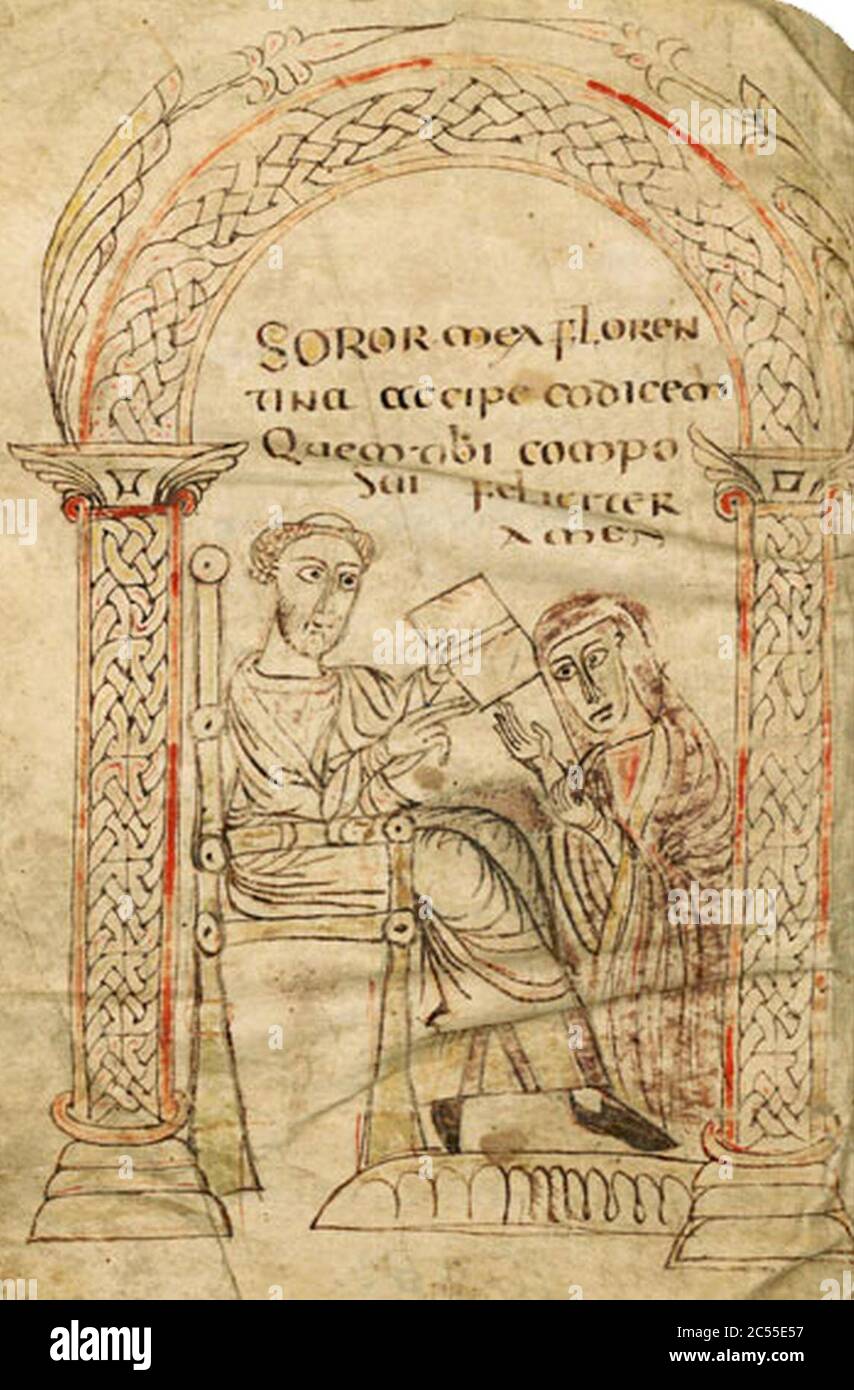 SOROR mea FLOREN
TINA accipe codicem
Quem tibi compo
sui feliciter
amen
alamy
Image ID: 2C55E57
www.alamy.com